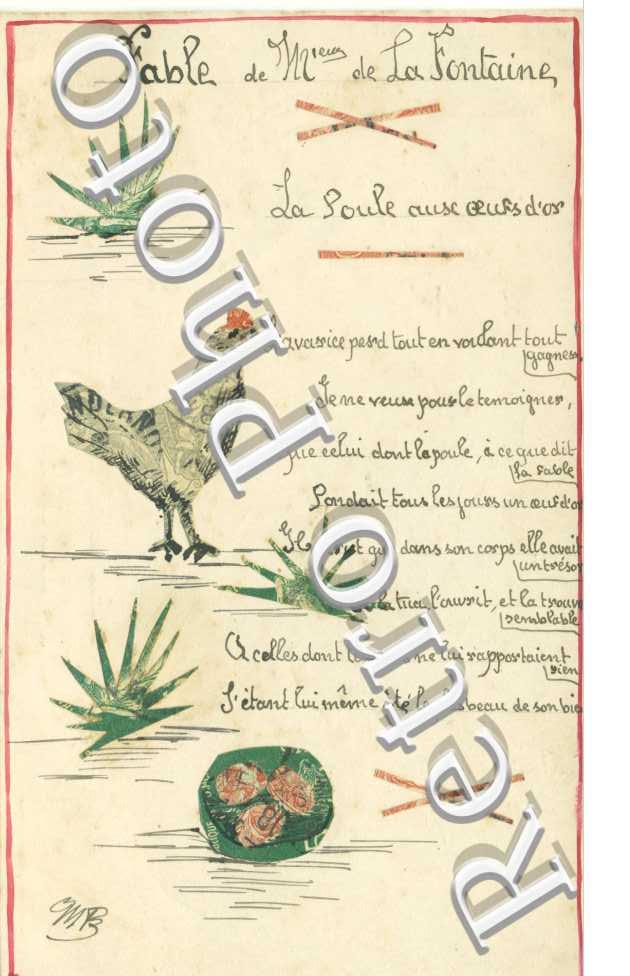 Fable de Mieur de La Fontaine
La Poule aux œufs d'or
L'avarice perd tout en voulant tout
gagner.
Je ne veux pour le temoigner,
que celui dont la poule, à ce que dit
la fable
Pondait tous les jours un œuf d'or
Il crut que dans son corps elle avait
un trésor
la tua, l'ouvrit, et la trouva
semblable
A celles dont les ne lui rapportaient
rien
S'étant lui même ôté le plus beau de son bie
MB
Retro Photo